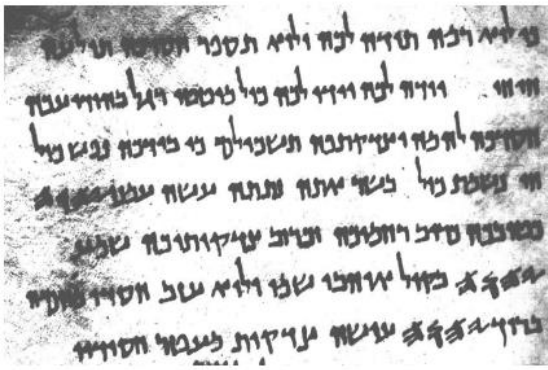 כי לוא רמה תודה לכה ולוא תספר חסדכה תולעה
חי חי יודה לכה יודו לכה כול מוטטי רגל בהודיעכה
חסדכה להמה וצדקתכה תשכילם כי בידכה נפש כול
חי נשמת כול בשר אתה נתתה עשה עמנו 𐤉𐤄𐤅𐤄
כטובכה כרוב רחמיכה וכרוב צדקותיכה שמע
𐤉𐤄𐤅𐤄 בקול אוהבי שמו ולוא עזב חסדו מהמה
ברוך 𐤉𐤄𐤅𐤄 עושה צדקות מעטר חסידיו